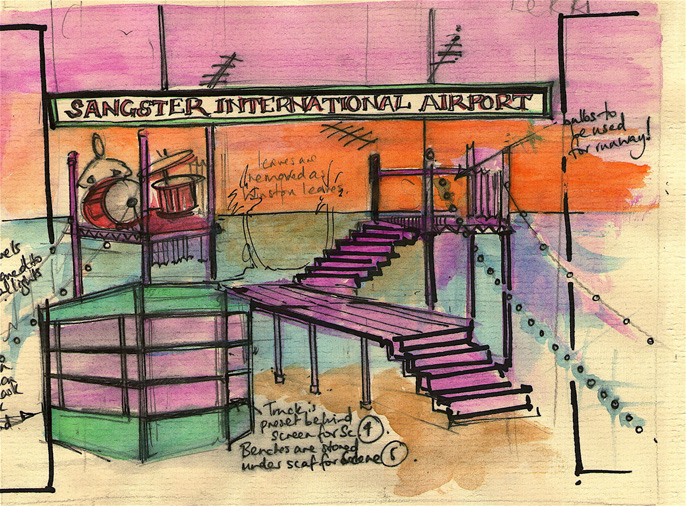 SANGSTER INTERNATIONAL AIRPORT
bulbs to
be used
for runway!
leaves are
removed as
Winston leaves.
lights
Truck is
preset behind
screen for Sc 4
Benches are stored
under scaf for scene 5